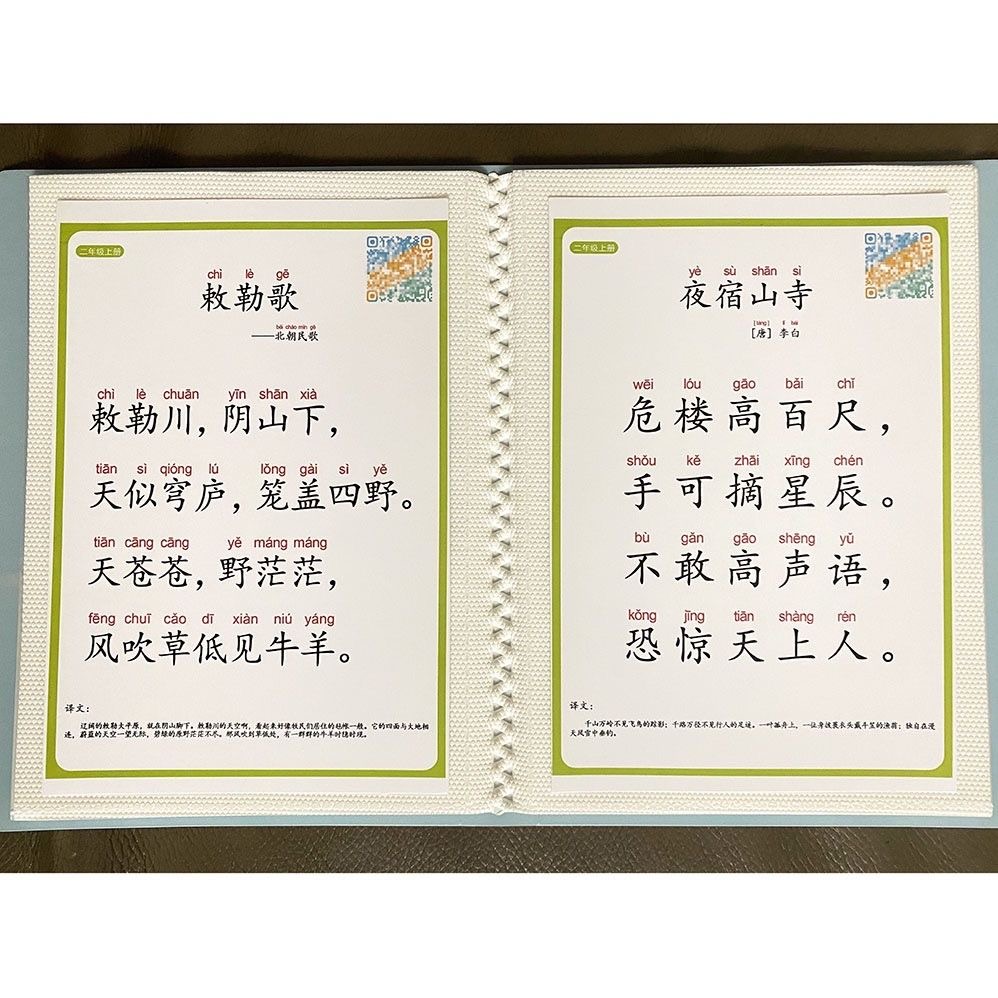 二年级上册
chì lè gē
敕勒歌
běi cháo mín gē
——北朝民歌
chì lè chuān yīn shān xià
敕勒川，阴山下，
tiān sì qióng lú lǒng gài sì yě
天似穹庐，笼盖四野。
tiān cāng cāng yě máng máng
天苍苍，野茫茫，
fēng chuī cǎo dī xiàn niú yáng
风吹草低见牛羊。
译文：
辽阔的敕勒大平原，就在阴山脚下。敕勒川的天空啊，看起来好像牧民们居住的毡帐一般。它的四面与大地相
连，蔚蓝的天空一望无际，碧绿的原野茫茫不尽。那风吹到草低处，有一群群的牛羊时隐时现。
二年级上册
yè sù shān sì
夜宿山寺
[táng] lǐ bái
［唐］李白
wēi lóu gāo bǎi chǐ
危楼高百尺，
shǒu kě zhāi xīng chén
手可摘星辰。
bù gǎn gāo shēng yǔ
不敢高声语，
kǒng jīng tiān shàng rén
恐惊天上人。
译文：
千山万岭不见飞鸟的踪影；千路万径不见行人的足迹。一叶孤舟上，一位身披蓑衣头戴斗笠的渔翁；独自在漫
天风雪中垂钓。